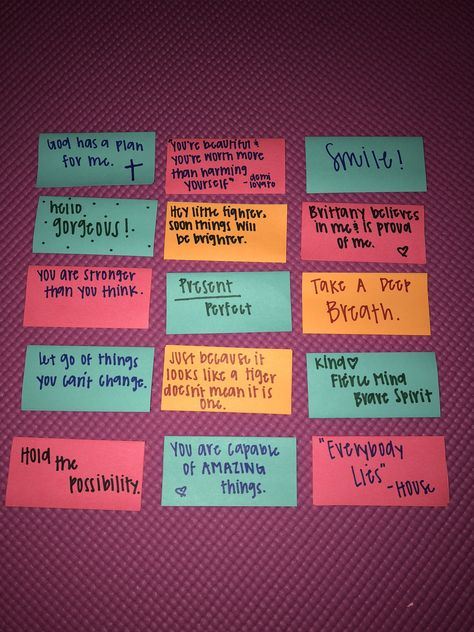 God has a plan
for me.
"You're beautiful &
you're worth more
than harming
yourself" - demi
lovato
Smile!
hello
gorgeous!
Hey little fighter,
soon things will
be brighter.
Brittany believes
in me & is proud
of me.
you are stronger
than you think.
Present
Perfect
Take A Deep
Breath.
let go of things
you can't change.
Just because it
looks like a tiger
doesn't mean it is
one.
Kind
Fierce Mind
Brave Spirit
Hold the
possibility.
You are capable
of AMAZING
things.
"Everybody
Lies"
- House